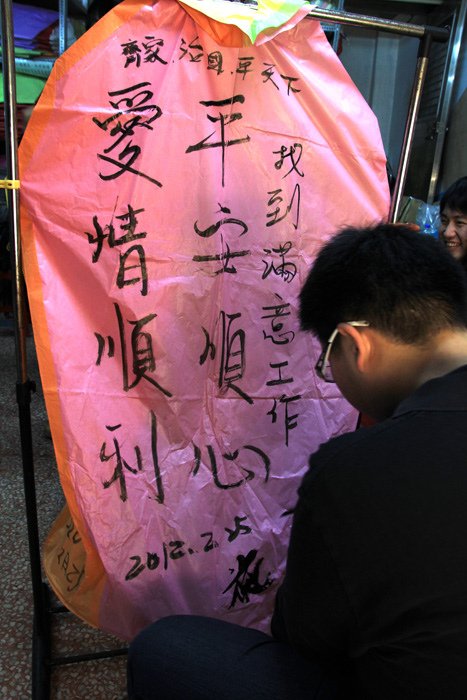 齊家.治国.平天下
找到滿意工作
平安順心
愛情順利
2012.2.25